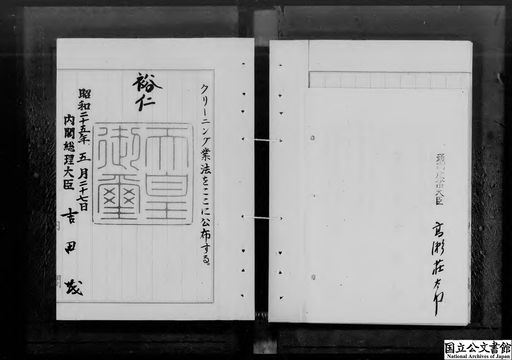 クリーニング業法をここに公布する。
裕仁
天皇
御璽
昭和二十五年五月二十七日
内閣総理大臣 吉田茂
大臣 高瀬荘太郎
国立公文書館
National Archives of Japan